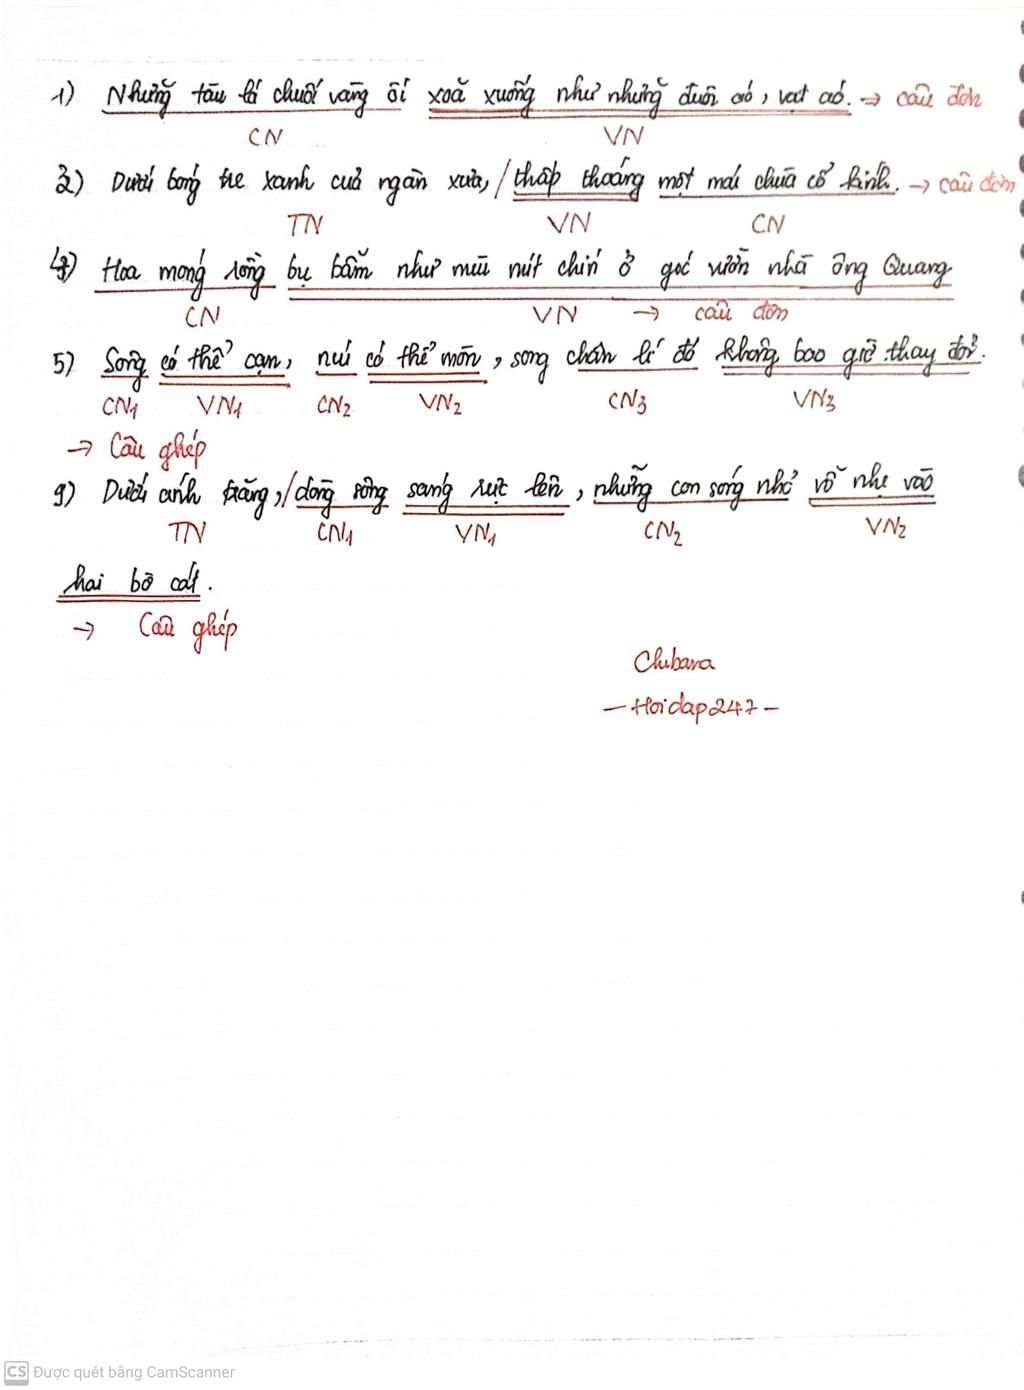 1) Những tàu lá chuối vàng ối xoã xuống như những đuôi áo, vạt áo. → câu đơn
CN VN
3) Dưới bóng tre xanh của ngàn xưa, / thấp thoáng một mái chùa cổ kính. → câu đơn
TN VN CN
4) Hoa móng rồng bụ bẫm như mùi mít chín ở góc vườn nhà ông Quang
CN VN → câu đơn
5) Sông có thể cạn, núi có thể mòn, song chân lí đó không bao giờ thay đổi.
CN1 VN1 CN2 VN2 CN3 VN3
→ Câu ghép
9) Dưới ánh trăng, / dòng sông sáng rực lên, những con sóng nhỏ vỗ nhẹ vào
TN CN1 VN1 CN2 VN2
hai bờ cát.
→ Câu ghép
Chibara
- Hoidap247 -
CS Được quét bằng CamScanner